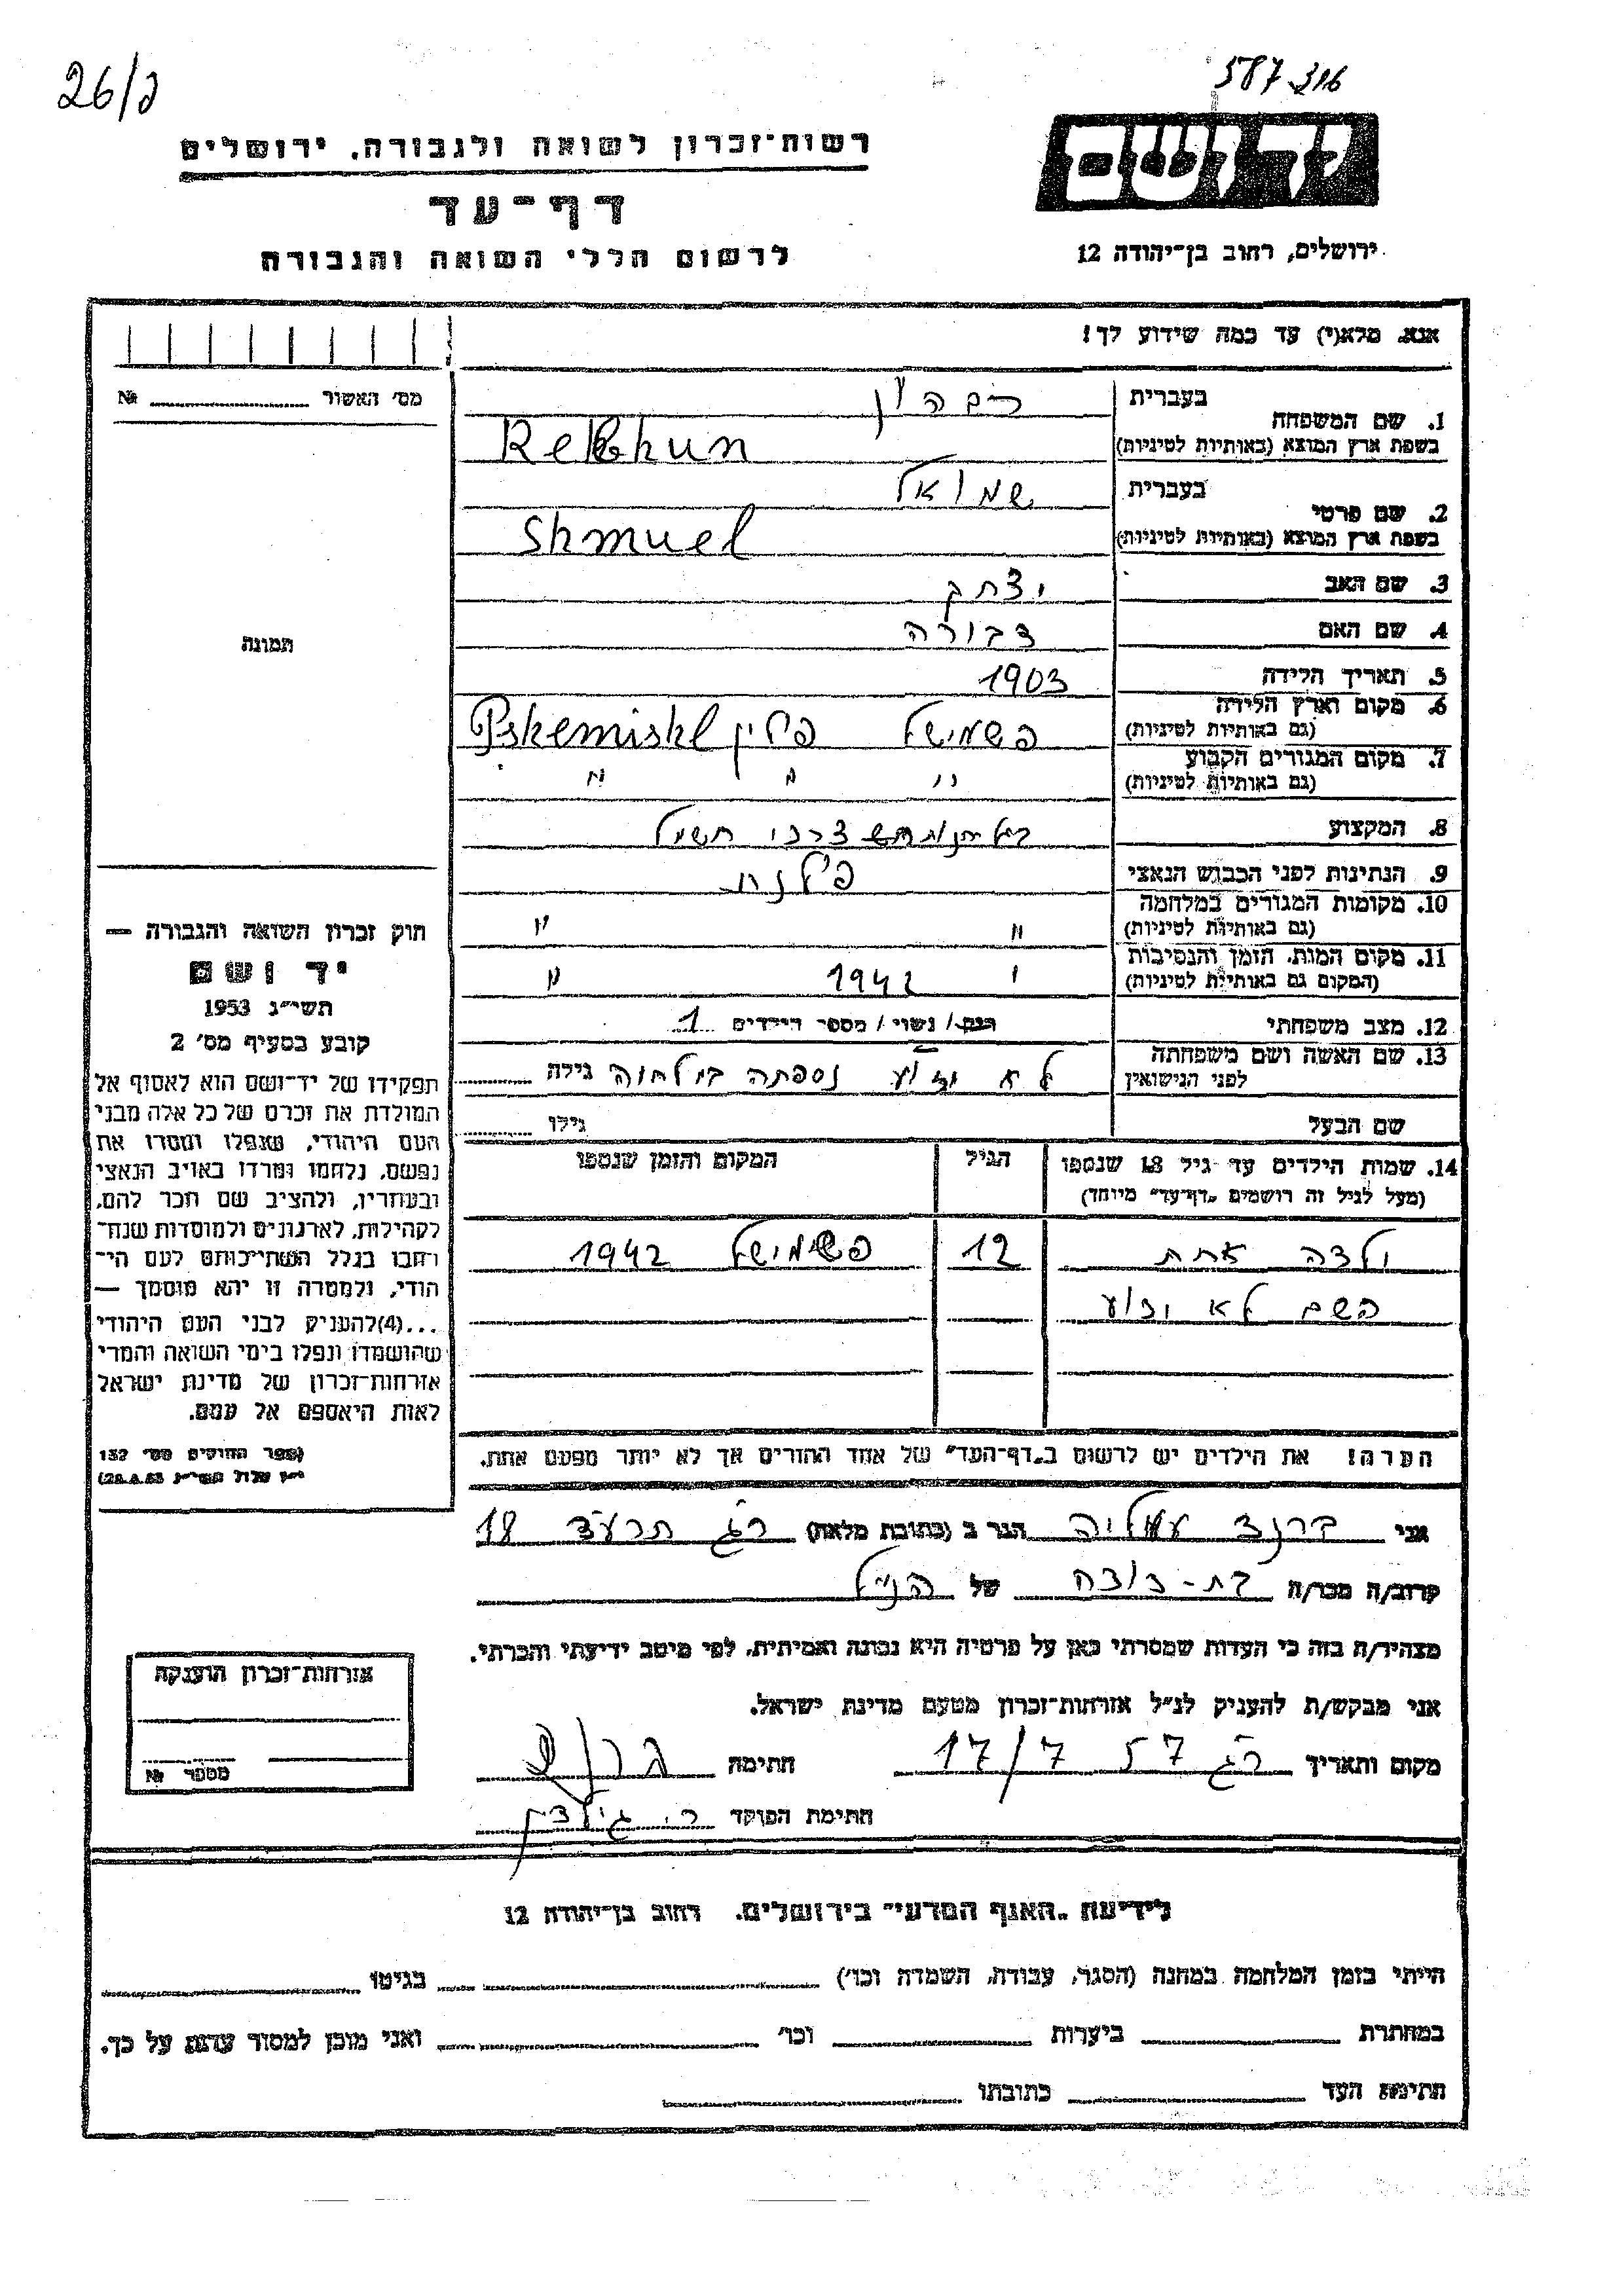 26/ג
587 316
רשות־זכרון לשואה ולגבורה, ירושלים
יד ושם
דף־עד
ירושלים, רחוב בן־יהודה 12
לרשום חללי השואה והגבורה
אנא, מלא(י) עד כמה שידוע לך!
מס׳ האשור № 
1. שם המשפחה בעברית רבהון
בשפת ארץ המוצא (באותיות לטיניות) Rebhun
2. שם פרטי בעברית שמואל
בשפת ארץ המוצא (באותיות לטיניות) Shmuel
3. שם האב יצחק
4. שם האם דבורה
תמונה
5. תאריך הלידה 1903
6. מקום וארץ הלידה (גם באותיות לטיניות) פשמישל פולין Pskemiskl
7. מקום המגורים הקבוע (גם באותיות לטיניות) " " "
8. המקצוע צרכי חשמל
9. הנתינות לפני הכבוש הנאצי פולנית
10. מקומות המגורים במלחמה (גם באותיות לטיניות) " "
11. מקום המות, הזמן והנסיבות (המקום גם באותיות לטיניות) " 1942 "
12. מצב משפחתי רווק / נשוי / מספר הילדים 1
13. שם האשה ושם משפחתה לפני הנישואין לא ידוע נספתה במלחמה גילה
שם הבעל גילו
14. שמות הילדים עד גיל 18 שנספו (מעל לגיל זה רושמים "דף־עד" מיוחד) הגיל המקום והזמן שנספו
ילדה אחת 12 פשמישל 1942
השם לא ידוע
הערה! את הילדים יש לרשום ב"דף־העד" של אחד ההורים אך לא יותר מפעם אחת.
חוק זכרון השואה והגבורה —
יד ושם
תשי״ג 1953
קובע בסעיף מס׳ 2
תפקידו של יד־ושם הוא לאסוף אל
המולדת את זכרם של כל אלה מבני
העם היהודי, שנפלו ומסרו את
נפשם, נלחמו ומרדו באויב הנאצי
ובעוזריו, ולהציב שם וזכר להם,
לקהילות, לארגונים ולמוסדות שנח־
רבו בגלל השתייכותם לעם הי־
הודי, ולמטרה זו יהא מוסמך —
...(4) להעניק לבני העם היהודי
שהושמדו ונפלו בימי השואה והמרי
אזרחות־זכרון של מדינת ישראל
לאות היאספם אל עמם.
(ספר החוקים מס׳ 132
י״ז אלול תשי״ג 28.8.53)
אני ברנד עמליה הגר ב (כתובת מלאה) רג תרע״ד 18
קרוב/ה מכר/ה בת-דודה של הנ״ל
מצהיר/ה בזה כי העדות שמסרתי כאן על פרטיה היא נכונה ואמיתית, לפי מיטב ידיעתי והכרתי.
אני מבקש/ת להעניק לנ״ל אזרחות־זכרון מטעם מדינת ישראל.
מקום ותאריך רג 57 17/7 חתימה
חתימת הפוקד
אזרחות־זכרון הוענקה
מספר №
לידיעת "האגף המדעי" בירושלים, רחוב בן־יהודה 12
הייתי בזמן המלחמה במחנה (הסגר, עבודה, השמדה וכו׳) בגיטו
במחתרת ביערות וכו׳ ואני מוכן למסור עדות על כך.
חתימת העד כתובתו